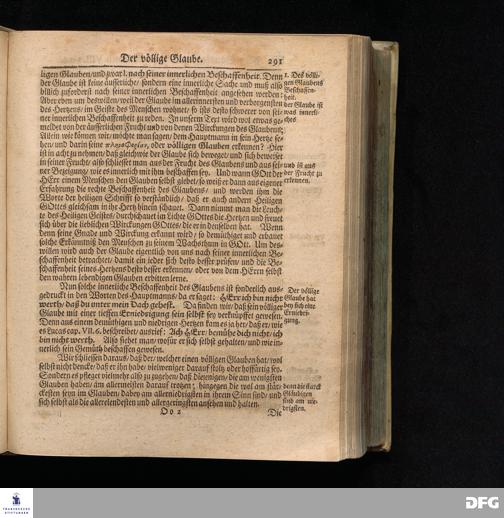 Der völlige Glaube. 291
ligen Glauben/ und zwar 1. nach seiner innerlichen Beschaffenheit. Denn
der Glaube ist keine äusserliche/ sondern eine innerliche Sache und muß also
billich zuforderst nach seiner innerlichen Beschaffenheit angesehen werden:
Aber eben um deswillen/ weil der Glaube im allerinnersten und verborgensten
des Hertzens/ im Geiste des Menschen wohnet/ so ists desto schwerer von sei-
ner innerlichen Beschaffenheit zu reden. In unserm Text wird wol etwas ge-
meldet von der äusserlichen Frucht und von denen Wirckungen des Glaubens;
Allein wie können wir/ möchte man sagen/ dem Hauptmann in sein Hertze se-
hen/ und darin seine πληροφορίαν, oder völligen Glauben erkennen? Hier
ist in acht zu nehmen/ daß gleichwie der Glaube sich beweget/ und sich beweiset
in seiner Frucht/ also schliesset man aus der Frucht des Glaubens und aus sei-
ner Bezeigung/ wie es innerlich mit ihm beschaffen sey. Und wann GOtt der
HErr einem Menschen den Glauben selbst giebet/ so weiß er dann aus eigener
Erfahrung die rechte Beschaffenheit des Glaubens/ und werden ihm die
Worte der heiligen Schrifft so verständlich/ daß er auch andern Heiligen
GOttes gleichsam in ihr Hertz hinein schauet. Dann nimmt man die Leuch-
te des Heiligen Geistes/ durchschauet im Lichte GOttes die Hertzen und freuet
sich über die lieblichen Wirckungen GOttes/ die er in denselben hat. Wenn
denn seine Gnade und Wirckung erkannt wird/ so demüthiget und erbauet
solche Erkänntniß den Menschen zu seinem Wachsthum in GOtt. Um des-
willen wird auch der Glaube eigentlich von uns nach seiner innerlichen Be-
schaffenheit betrachtet/ damit ein jeder sich desto besser prüfen/ und die Be-
schaffenheit seines Hertzens desto besser erkennen/ oder von dem HErrn selbst
den wahren lebendigen Glauben erbitten lerne.
Nun solche innerliche Beschaffenheit des Glaubens ist sonderlich aus-
gedruckt in den Worten des Hauptmanns/ da er saget: HErr ich bin nicht
werth/ daß du unter mein Dach gehest. Da finden wir/ daß sein völliger
Glaube mit einer tieffen Erniedrigung sein selbst sey verknüpffet gewesen.
Denn aus einem demüthigen und niedrigen Hertzen kam es ja her/ daß er/ wie
es Lucas cap. VII. 6. beschreibet/ ausrief: Ach HErr/ bemühe dich nicht/ ich
bin nicht werth. Also siehet man/ wofür er sich selbst gehalten/ und wie in-
nerlich sein Gemüth beschaffen gewesen.
Wir schliessen daraus/ daß der/ welcher einen völligen Glauben hat/ wol
selbst nicht dencke/ daß er ihn habe/ vielweniger darauf stoltz oder hoffärtig sey.
Sondern es pfleget vielmehr also zu gehen/ daß diejenigen/ die am wenigsten
Glauben haben/ am allermeisten darauf trotzen; hingegen die wol am stär-
ckesten seyn im Glauben/ dabey am allerniedrigsten in ihrem Sinn sind/ und
sich selbst als die allerelendesten und allergeringsten ansehen und halten.
Oo 2 Die
1. Des völli-
gen Glaubens
Beschaffen-
heit.
der Glaube ist
was innerli-
ches
und ist aus
der Frucht zu
erkennen.
Der völlige
Glaube hat
bey sich eine
Erniedri-
gung.
denn die starck
Gläubigen
sind am nie-
drigsten.
FRANCKESCHE
STIFTUNGEN
DFG